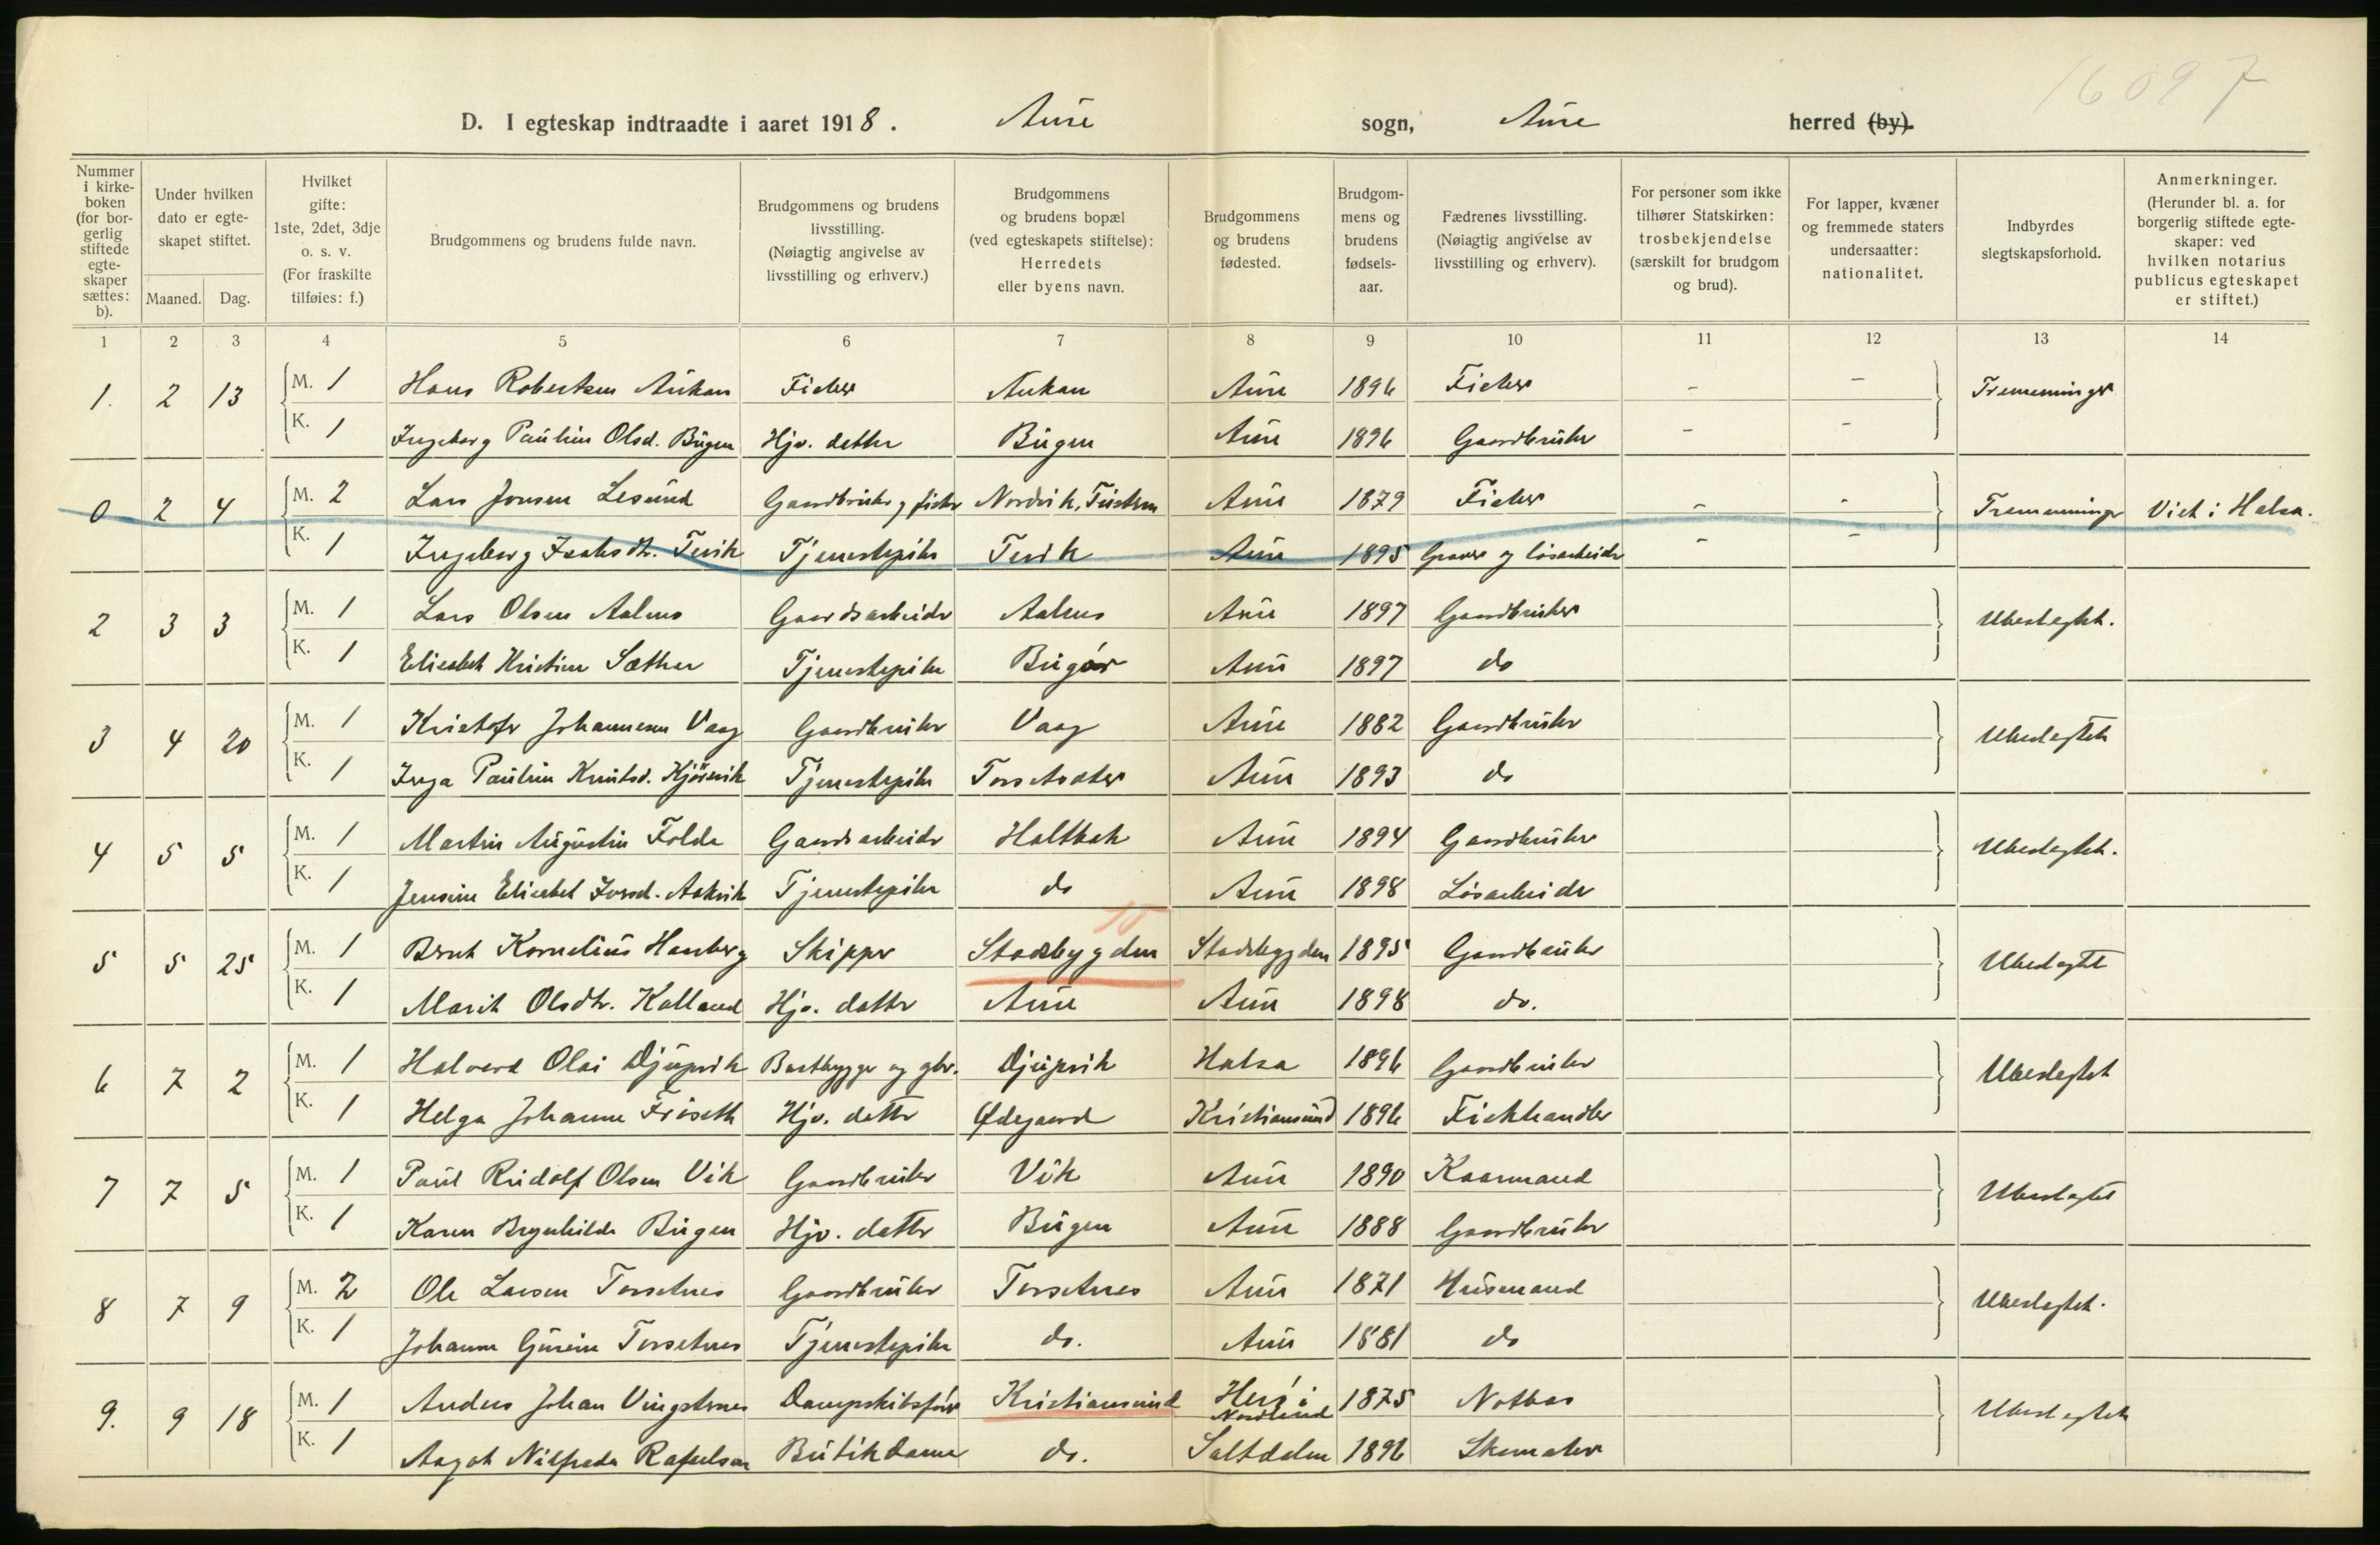 16097
D. I egteskap indtraadte i aaret 1918. Aure sogn, Aure herred (by).
Nummer i kirke-boken (for bor-gerlig stiftede egte-skaper sættes: b).
Under hvilken dato er egte-skapet stiftet.
Maaned. Dag.
Hvilket gifte: 1ste, 2det, 3dje o. s. v. (For fraskilte tilføies: f.)
Brudgommens og brudens fulde navn.
Brudgommens og brudens livsstilling. (Nøiagtig angivelse av livsstilling og erhverv.)
Brudgommens og brudens bopæl (ved egteskapets stiftelse): Herredets eller byens navn.
Brudgommens og brudens fødested.
Brudgom-mens og brudens fødsels-aar.
Fædrenes livsstilling. (Nøiagtig angivelse av livsstilling og erhverv).
For personer som ikke tilhører Statskirken: trosbekjendelse (særskilt for brudgom og brud).
For lapper, kvæner og fremmede staters undersaatter: nationalitet.
Indbyrdes slegtskapsforhold.
Anmerkninger. (Herunder bl. a. for borgerlig stiftede egte-skaper: ved hvilken notarius publicus egteskapet er stiftet.)
1 2 3 4 5 6 7 8 9 10 11 12 13 14
1. 2 13 M. 1 Hans Robertsen Aukan Fisker Aukan Aure 1896 Fisker - - Tremenninger
K. 1 Ingeborg Pauline Olsd. Bugen Hjv. datter Bugen Aure 1896 Gaardbruker - -
0 2 4 M. 2 Lars Jonsen Lesund Gaardbruker og fisker Nordvik, Tustern Aure 1879 Fisker - - Tremenninger Viet i Halsa.
K. 1 Ingeborg Isaksdtr. Tevik Tjenestepike Tevik Aure 1895 Graver og løsarbeider - -
2 3 3 M. 1 Lars Olsen Aalmo Gaardsarbeider Aalmo Aure 1897 Gaardbruker Ubeslegtet.
K. 1 Elisabet Kristine Sæther Tjenestepike Bugør Aure 1897 do
3 4 20 M. 1 Kristofer Johannesen Vaag Gaardbruker Vaag Aure 1882 Gaardbruker Ubeslegtet
K. 1 Inga Pauline Knutsd. Kjørsvik Tjenestepike Torsetsæter Aure 1893 do
4 5 5 M. 1 Martin Augustin Folde Gaardsarbeider Holtbak Aure 1894 Gaardbruker Ubeslegtet.
K. 1 Jensine Elisabet Iversd. Aakvik Tjenestepike do Aure 1898 Løsarbeider
15
5 5 25 M. 1 Bernt Kornelius Hasberg Skipper Stadsbygden Stadsbygden 1895 Gaardbruker Ubeslegtet
K. 1 Marit Olsdtr. Kalland Hjv. datter Aure Aure 1898 do.
6 7 2 M. 1 Halvard Olai Djupvik Baatbygger og gbr. Djupvik Halsa 1896 Gaardbruker Ubeslegtet
K. 1 Helga Johanne Friseth Hjv. datter Ødegaard Kristiansund 1896 Fiskhandler
7 7 5 M. 1 Paul Rudolf Olsen Vik Gaardbruker Vik Aure 1890 Kaarmand Ubeslegtet
K. 1 Karen Brynhilda Bugen Hjv. datter Bugen Aure 1888 Gaardbruker
8 7 9 M. 2 Ole Larsen Torsetnes Gaardbruker Torsetnes Aure 1871 Husmand Ubeslegtet.
K. 1 Johanna Gurine Torsetnes Tjenestepike do. Aure 1881 do
9. 9 18 M. 1 Anders Johan Vingstrnes Dampskibsfører Kristiansund Herø i Nordland 1875 Notbas Ubeslegtet
K. 1 Aagot Nilfreda Rafaelsen Butikdame do. Saltdalen 1896 Skomaker